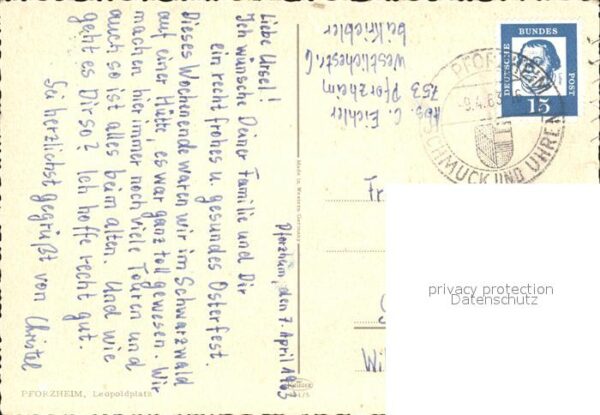 Pforzheim, den 7. April 1963
Liebe Ursel!
Ich wünsche Deiner Familie und Dir
ein recht frohes u. gesundes Osterfest.
Dieses Wochenende waren wir im Schwarzwald
auf einer Hütte, es war ganz toll gewesen. Wir
machen hier immer noch viele Touren und
auch so ist alles beim alten. Und wie
geht es Dir so? Ich hoffe recht gut.
Sei herzlichst gegrüßt von Christel
Abs. C. Eichler
753 Pforzheim
Westlichestr. 6
bei Kriebler
DEUTSCHE BUNDESPOST
15
PFORZHEIM
-9.4.63
SCHMUCK UND UHREN
Made in Western Germany
Fr
Wi
privacy protection
Datenschutz
PFORZHEIM, Leopoldplatz